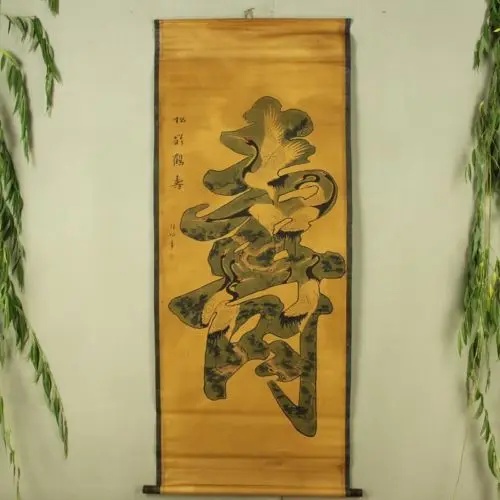 壽
松齡鶴壽